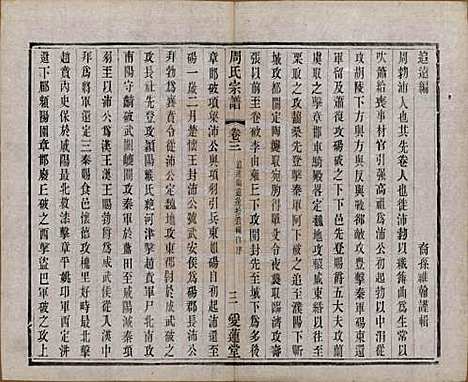 追遠編
裔孫維翰謹輯
周勃沛人也其先卷人也徙沛勃以織薄曲爲生常以
吹簫給喪事材官引强高祖爲沛公初起勃以中涓從
攻胡陵下方與方與反與戰卻敵攻豐擊秦軍碭東還
軍留及蕭復攻碭破之下下邑先登賜爵五大夫攻蘭
虞取之擊章邯車騎殿略定魏地攻轅戚東緡以往至
栗取之攻齧桑先登擊秦軍阿下破之追至濮陽下甄
城攻都關定陶襲取宛朐得單父令夜襲取臨濟攻壽
張以前至卷破李由雍丘下攻開封先至城下爲多後
周氏宗譜
卷三
二
愛蓮堂
章邯破項梁沛公與項羽引兵東如碭自初起沛還至
碭一歲二月楚懷王封沛公號武安侯爲碭郡長沛公
拜勃爲襄賁令從沛公定魏地攻東郡尉於成武破之
攻長社先登攻潁陽緱氏絕河津擊趙賁軍尸北南攻
南陽守齮破武關嶢關攻秦軍於藍田至咸陽滅秦項
羽至以沛公爲漢王漢王賜勃爵爲威武侯從入漢中
拜爲將軍還定三秦賜食邑懷德攻槐里好畤最北擊
趙賁內史保於咸陽最北救漆擊章平姚卬軍西定汧
還下郿頻陽圍章邯廢丘破之西擊益巴軍破之攻上